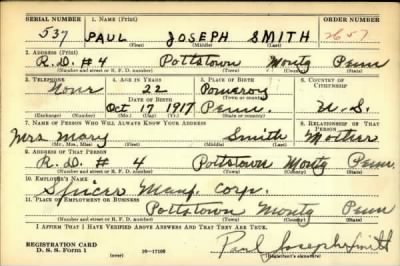 SERIAL NUMBER 1. NAME (Print) ORDER NUMBER
537 PAUL JOSEPH SMITH 2657
(First) (Middle) (Last)
2. ADDRESS (Print)
R.D. # 4 Pottstown Montg Penn
(Number and street or R. F. D. number) (Town) (County) (State)
3. TELEPHONE 4. AGE IN YEARS 5. PLACE OF BIRTH 6. COUNTRY OF CITIZENSHIP
None 22 Pomeroy
DATE OF BIRTH (Town or county)
Oct 17 1917 Penn. U.S.
(Exchange) (Number) (Mo.) (Day) (Yr.) (State or country)
7. NAME OF PERSON WHO WILL ALWAYS KNOW YOUR ADDRESS 8. RELATIONSHIP OF THAT PERSON
Mrs. Mary Smith Mother
(Mr., Mrs., Miss) (First) (Middle) (Last)
9. ADDRESS OF THAT PERSON
R.D. # 4 Pottstown Montg Penn.
(Number and street or R. F. D. number) (Town) (County) (State)
10. EMPLOYER'S NAME
Spicer Manf. Corp.
11. PLACE OF EMPLOYMENT OR BUSINESS
Pottstown Montg Penn
(Number and street or R. F. D. number) (Town) (County) (State)
I AFFIRM THAT I HAVE VERIFIED ABOVE ANSWERS AND THAT THEY ARE TRUE.
REGISTRATION CARD
D. S. S. Form 1 16—17105 Paul Joseph Smith
(Registrant's signature)